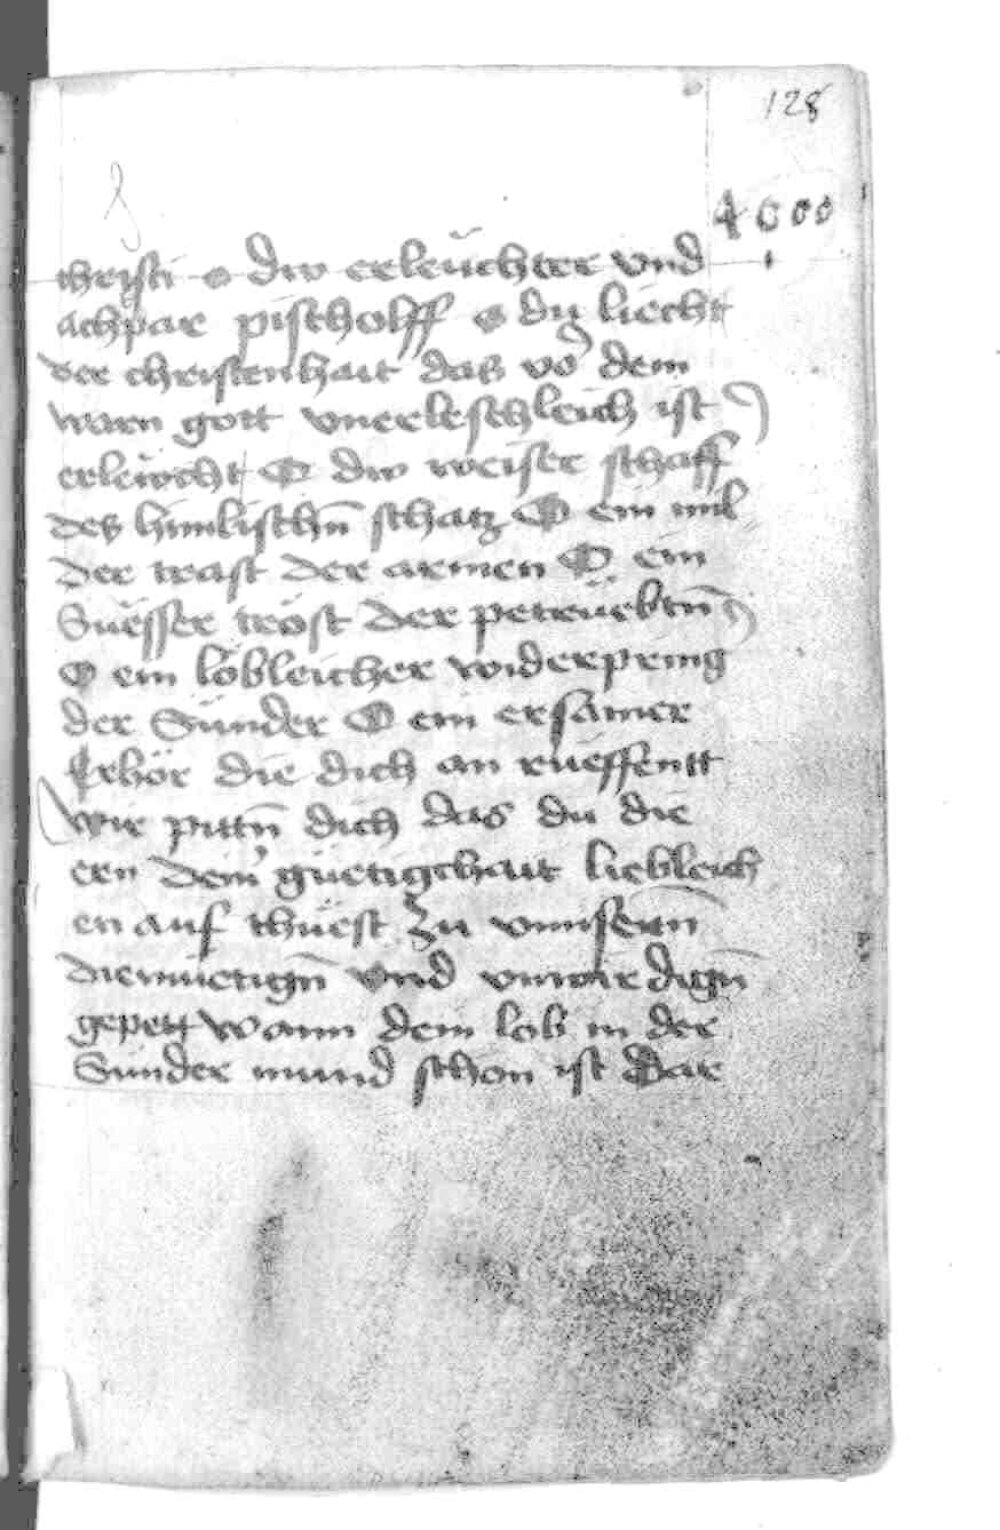 128
4000
christi o dw erleuchter vnd
achpar pischolff o du liecht
der christenhait das vō dem
warn gott vnerleschleich ist
erlewcht O dw weiser schaff
des himlischn̄ schatz O ein mil
der trast der armen O ein
Süesser tröst der petrüebtn̄
O ein löbleicher widerpring
der Sünder O ein ersamer
Erhör die dich an rüeffentt
wir pittn̄ dich das du die
ern deiner güetigchait liebleich
en auf thüest Zu vnnsernn̄
diemüetign̄ vnd vnwirdign̄
gepett wann dein lob in der
Sünder mund schon ist Dar